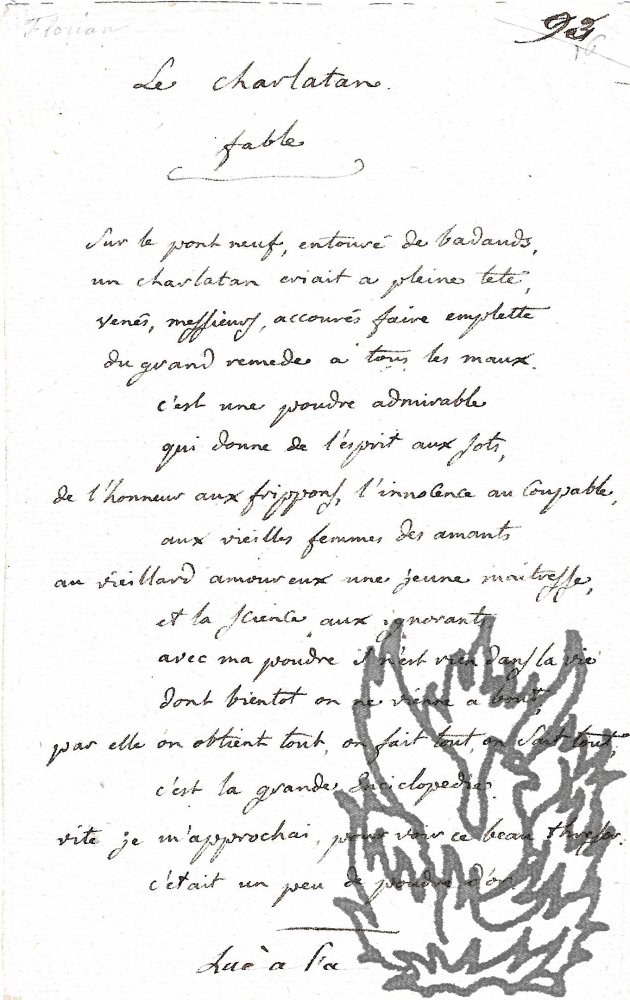 Florian
93
Le charlatan.
fable
Sur le pont neuf, entouré de badauds,
un charlatan criait a pleine tete,
venés, messieurs, accourés faire emplette
du grand remede a tous les maux.
c'est une poudre admirable
qui donne de l'esprit aux sots,
de l'honneur aux frippons, l'innocence au coupable,
aux vieilles femmes des amants
au vieillard amoureux une jeune maitresse,
et la science aux ignorants
avec ma poudre il n'est rien dans la vie
dont bientot on ne vienne a bout,
par elle on obtient tout, on fait tout, on sait tout,
c'est la grande Enciclopedie.
vite je m'approchai, pour voir ce beau thresor.
c'était un peu de poudre d'or.
a l'a